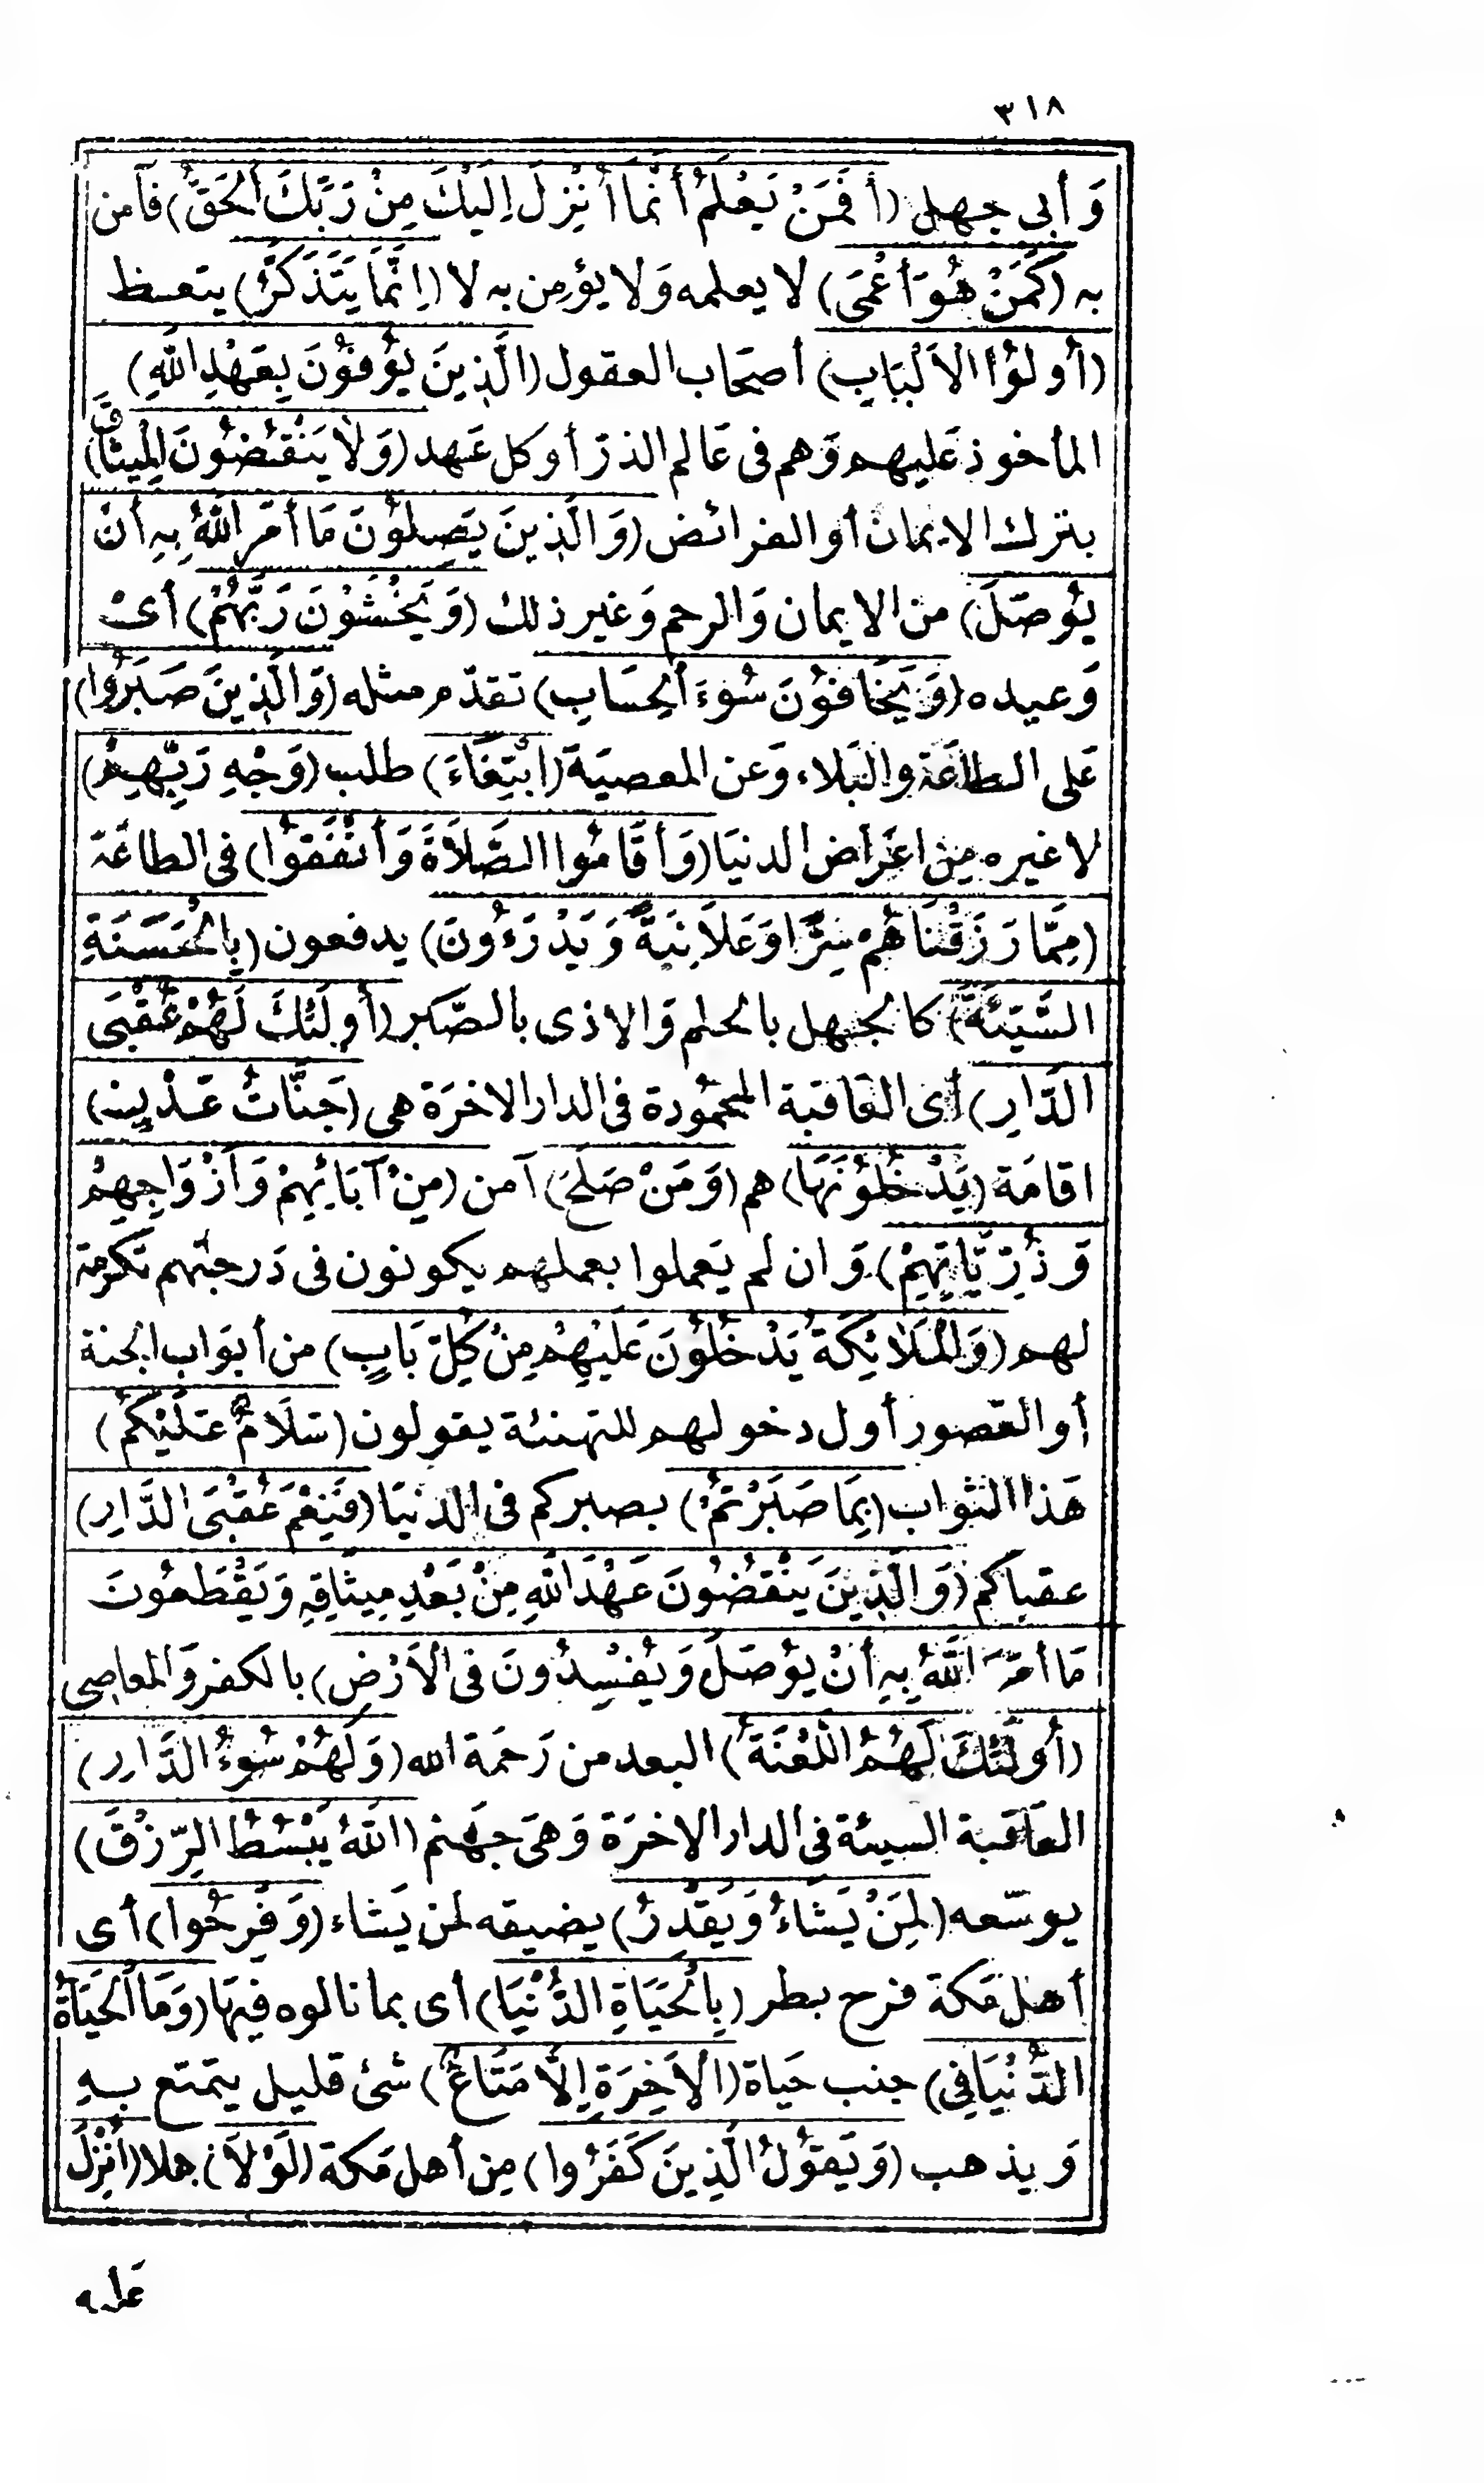 ٣١٨
وَأبى جهل (أَفَمَنْ يَعْلَمُ أَنَّمَا أُنْزِلَ اِلَيْكَ مِنْ رَبِّكَ الْحَقُّ) فآمن
به (كَمَنْ هُوَ أَعْمَى) لا يعلمه وَلا يؤمن به لا (اِنَّمَا يَتَذَكَّرُ) يتعظ
(أُولُوْا الْاَلْبَابِ) أصحاب العقول (الَّذِينَ يُوْفُوْنَ بِعَهْدِ اللّٰهِ)
المأخوذ عَليهم وَهم فى عَالم الذرّ أو كل عَهد (وَلَا يَنْقُضُوْنَ الْمِيثَاقَ)
بترك الايمان أو الفرائض (وَالَّذِينَ يَصِلُوْنَ مَا أَمَرَ اللّٰهُ بِهِ أَنْ
يُوْصَلَ) من الايمان وَالرحم وَغير ذلك (وَيَخْشَوْنَ رَبَّهُمْ) أى
وَعيده (وَيَخَافُوْنَ سُوْءَ الْحِسَابِ) تقدّم مثله (وَالَّذِينَ صَبَرُوْا)
عَلى الطاعَة والبَلاء وَعن المعصيَة (ابْتِغَاءَ) طلب (وَجْهِ رَبِّهِمْ)
لا غيره من اعَرَاض الدنيَا (وَأَقَامُوا الصَّلَاةَ وَأَنْفَقُوْا) فى الطاعَة
(مِمَّا رَزَقْنَاهُمْ سِرًّا وَعَلَانِيَةً وَيَدْرَءُونَ) يدفعون (بِالْحَسَنَةِ
السَّيِّئَةَ) كالجهل بالحلم وَالاذى بالصّبر (أُولَئِكَ لَهُمْ عُقْبَى
الدَّارِ) أى العَاقبة المحمُودة فى الدار الاخرَة هى (جَنَّاتُ عَدْنٍ)
اقامَة (يَدْخُلُوْنَهَا) هم (وَمَنْ صَلَحَ) آمن (مِنْ آبَائِهِمْ وَأَزْوَاجِهِمْ
وَذُرِّيَّاتِهِمْ) وَان لم يَعملوا بعملهم يكونون فى دَرجتهم تكرمة
لهم (وَالْمَلَائِكَةُ يَدْخُلُوْنَ عَلَيْهِمْ مِنْ كُلِّ بَابٍ) من أبوَاب الجنة
أو القصور أول دخولهم للتهنئة يقولون (سَلَامٌ عَلَيْكُمْ)
هَذا الثواب (بِمَا صَبَرْتُمْ) بصبركم فى الدنيَا (فَنِعْمَ عُقْبَى الدَّارِ)
عقباكم (وَالَّذِينَ يَنْقُضُونَ عَهْدَ اللّٰهِ مِنْ بَعْدِ مِيثَاقِهِ وَيَقْطَعُونَ
مَا أَمَرَ اللّٰهُ بِهِ أَنْ يُوْصَلَ وَيُفْسِدُونَ فِى الْاَرْضِ) بالكفر وَالمعاصى
(أُولَئِكَ لَهُمُ اللَّعْنَةُ) البعد من رَحمَة الله (وَلَهُمْ سُوْءُ الدَّارِ)
العَاقبة السيئة فى الدار الاخرَة وَهىَ جهَنم (اللّٰهُ يَبْسُطُ الرِّزْقَ)
يوسّعه (لِمَنْ يَشَاءُ وَيَقْدِرُ) يضيقه لمن يَشاء (وَفَرِحُوا) أى
أهل مَكة فرح بطر (بِالْحَيَاةِ الدُّنْيَا) أى بما نالوه فيهَا (وَمَا الْحَيَاةُ
الدُّنْيَا فِى) جنب حَياة (الْاَخِرَةِ اِلَّا مَتَاعٌ) شئ قليل يتمتع بهِ
وَيذهب (وَيَقُوْلُ الَّذِينَ كَفَرُوا) مِن أهل مَكة (لَوْلَا) هلا (أُنْزِلَ
عَليه